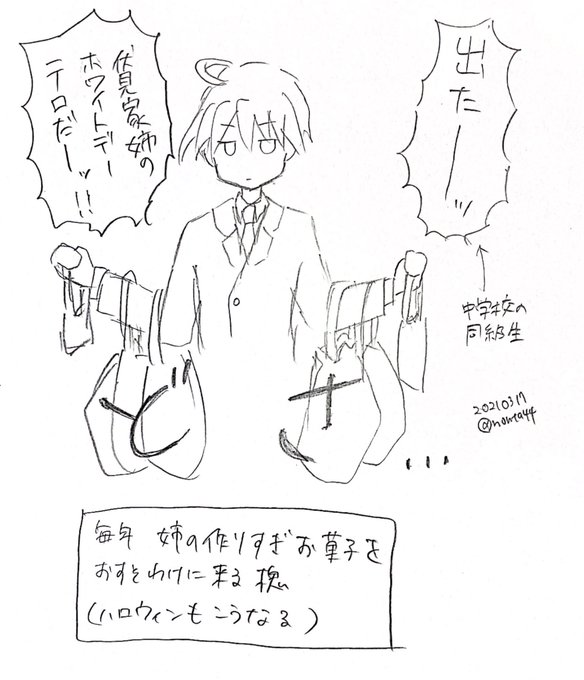 出たーッ
伏見家姉の
ホワイトデー
テロだーッ!!
中学校の
同級生
20210317
@nomta44
どさ...
毎年 姉の作りすぎお菓子を
おすそわけに来る
(ハロウィンもこうなる)